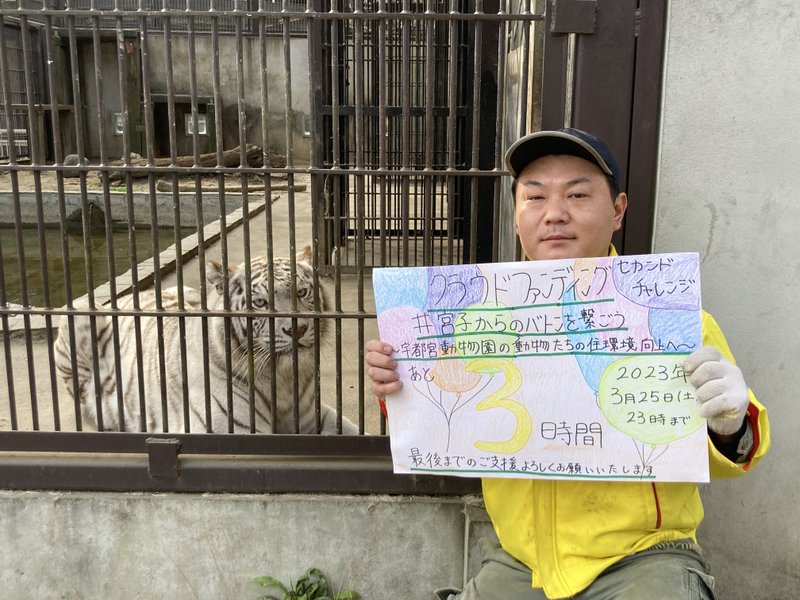 クラウドファンディング セカンドチャレンジ
#宮子からのバトンを繋ごう
～宇都宮動物園の動物たちの住環境向上へ～
あと 3 時間
2023年
3月25日(土)
23時まで
最後までのご支援よろしくお願いいたします